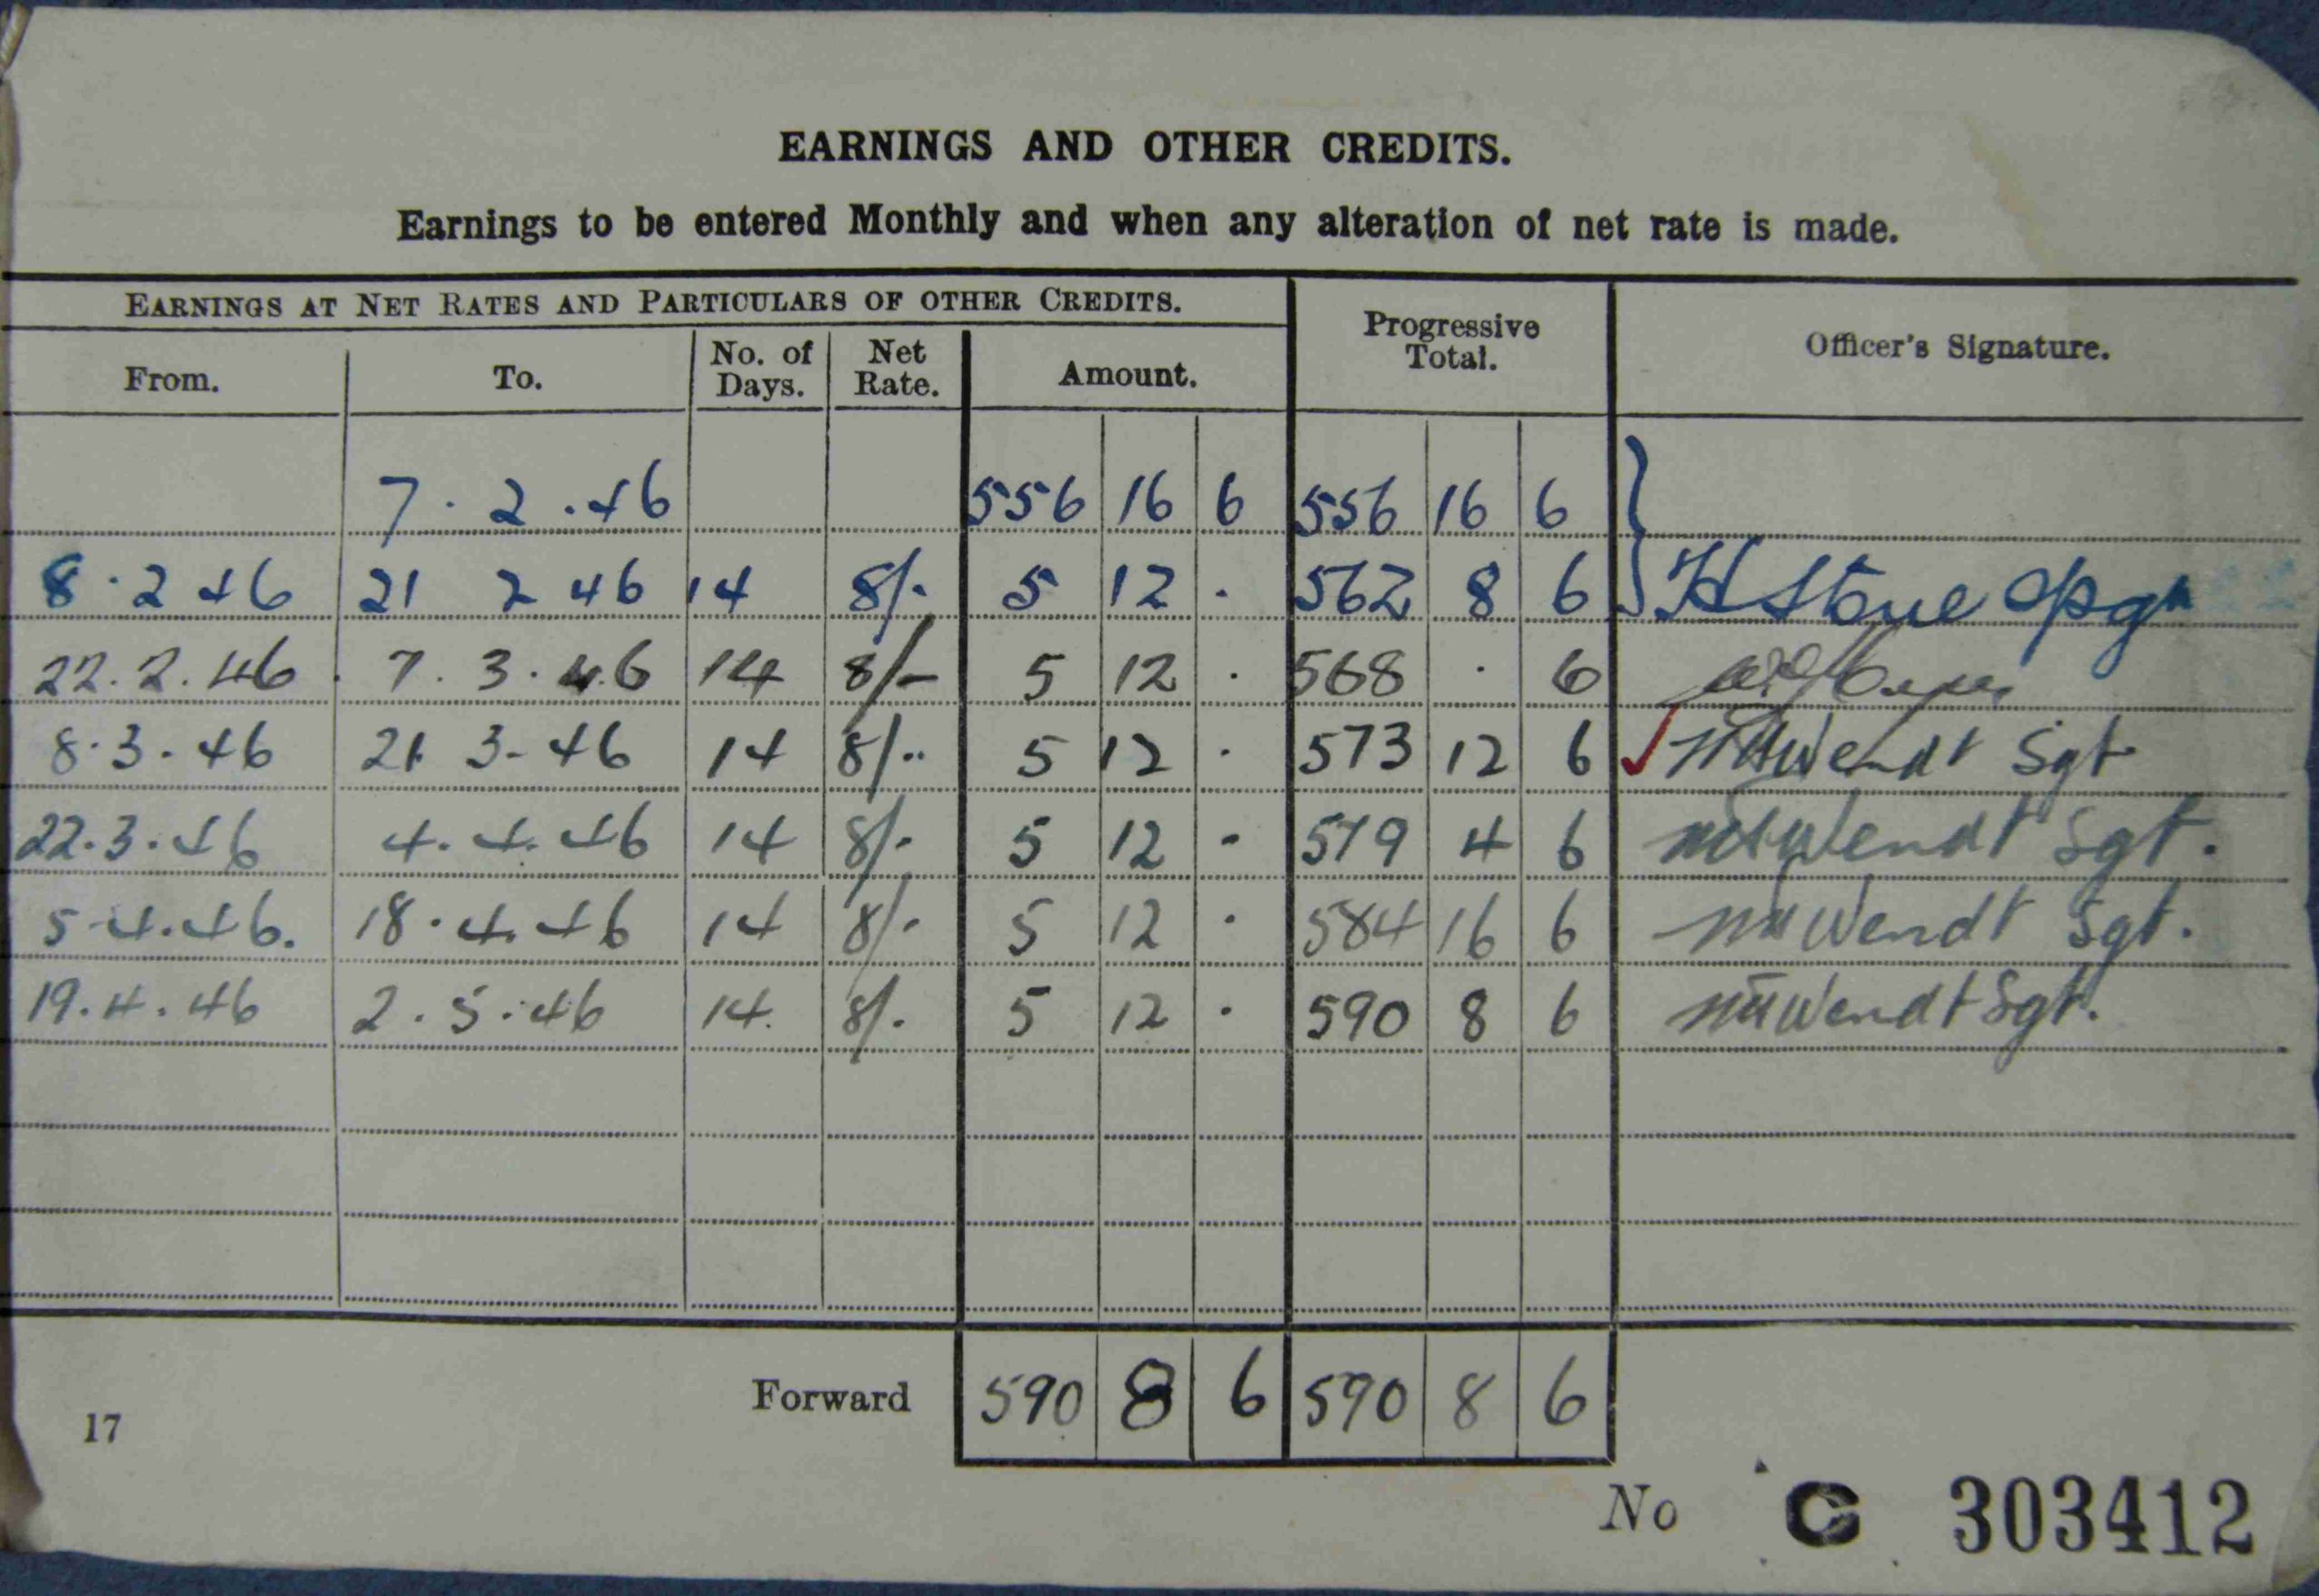 EARNINGS AND OTHER CREDITS.
Earnings to be entered Monthly and when any alteration of net rate is made.
EARNINGS AT NET RATES AND PARTICULARS OF OTHER CREDITS. Progressive Total. Officer's Signature.
From. To. No. of Days. Net Rate. Amount.
7.2.46 556 16 6 556 16 6
8.2 46 21 2 46 14 8/- 5 12 . 562 8 6 H Stone
22.2.46 7.3.46 14 8/- 5 12 . 568 . 6
8.3.46 21 3-46 14 8/- 5 12 . 573 12 6 Wendt Sgt
22.3.46 4.4.46 14 8/- 5 12 - 579 4 6 Wendt Sgt.
5-4.46. 18.4.46 14 8/- 5 12 . 584 16 6 Wendt Sgt.
19.4.46 2.5.46 14. 8/- 5 12 . 590 8 6 Wendt Sgt.
Forward 590 8 6 590 8 6
17
No G 303412